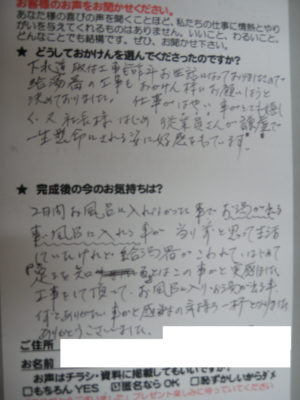 お客様のお声をお聞かせください。
あなた様の喜びの声を聞くことほど、私たちの仕事に情熱とやり
がいを与えてくれるものはありません。いいこと、わるいこと、
どんなことでも結構です。ぜひ、お聞かせ下さい。
★ どうしておかけんを選んでくださったのですか?
下水道 取付工事も昨年お世話になっておりましたので
給湯器の工事もおかけん様にお願いしようと
決めておりました。仕事がはやい、事がとても嬉し
く、又 社長様はじめ 従業員さんが謙虚で
一生懸命にされる姿に好感をもてます。
★ 完成後の今のお気持ちは?
2日間お風呂に入れなかった事でお湯が出る
事、風呂に入れる事が 当り前と思って生活
していたけれど 給湯器がこわれて、はじめて
を知
この事かと実感
工事をして頂って、お風呂に入り、お湯が出る事、
何とありがたい事かと感謝の気持で一杯となりました
ありがとうございました。
ご住所
お名前
お声はチラシ・資料に掲載してもいいですか?
□もちろん YES ☑匿名なら OK □恥ずかしいからダメ
プレゼント楽しみに待っていてください